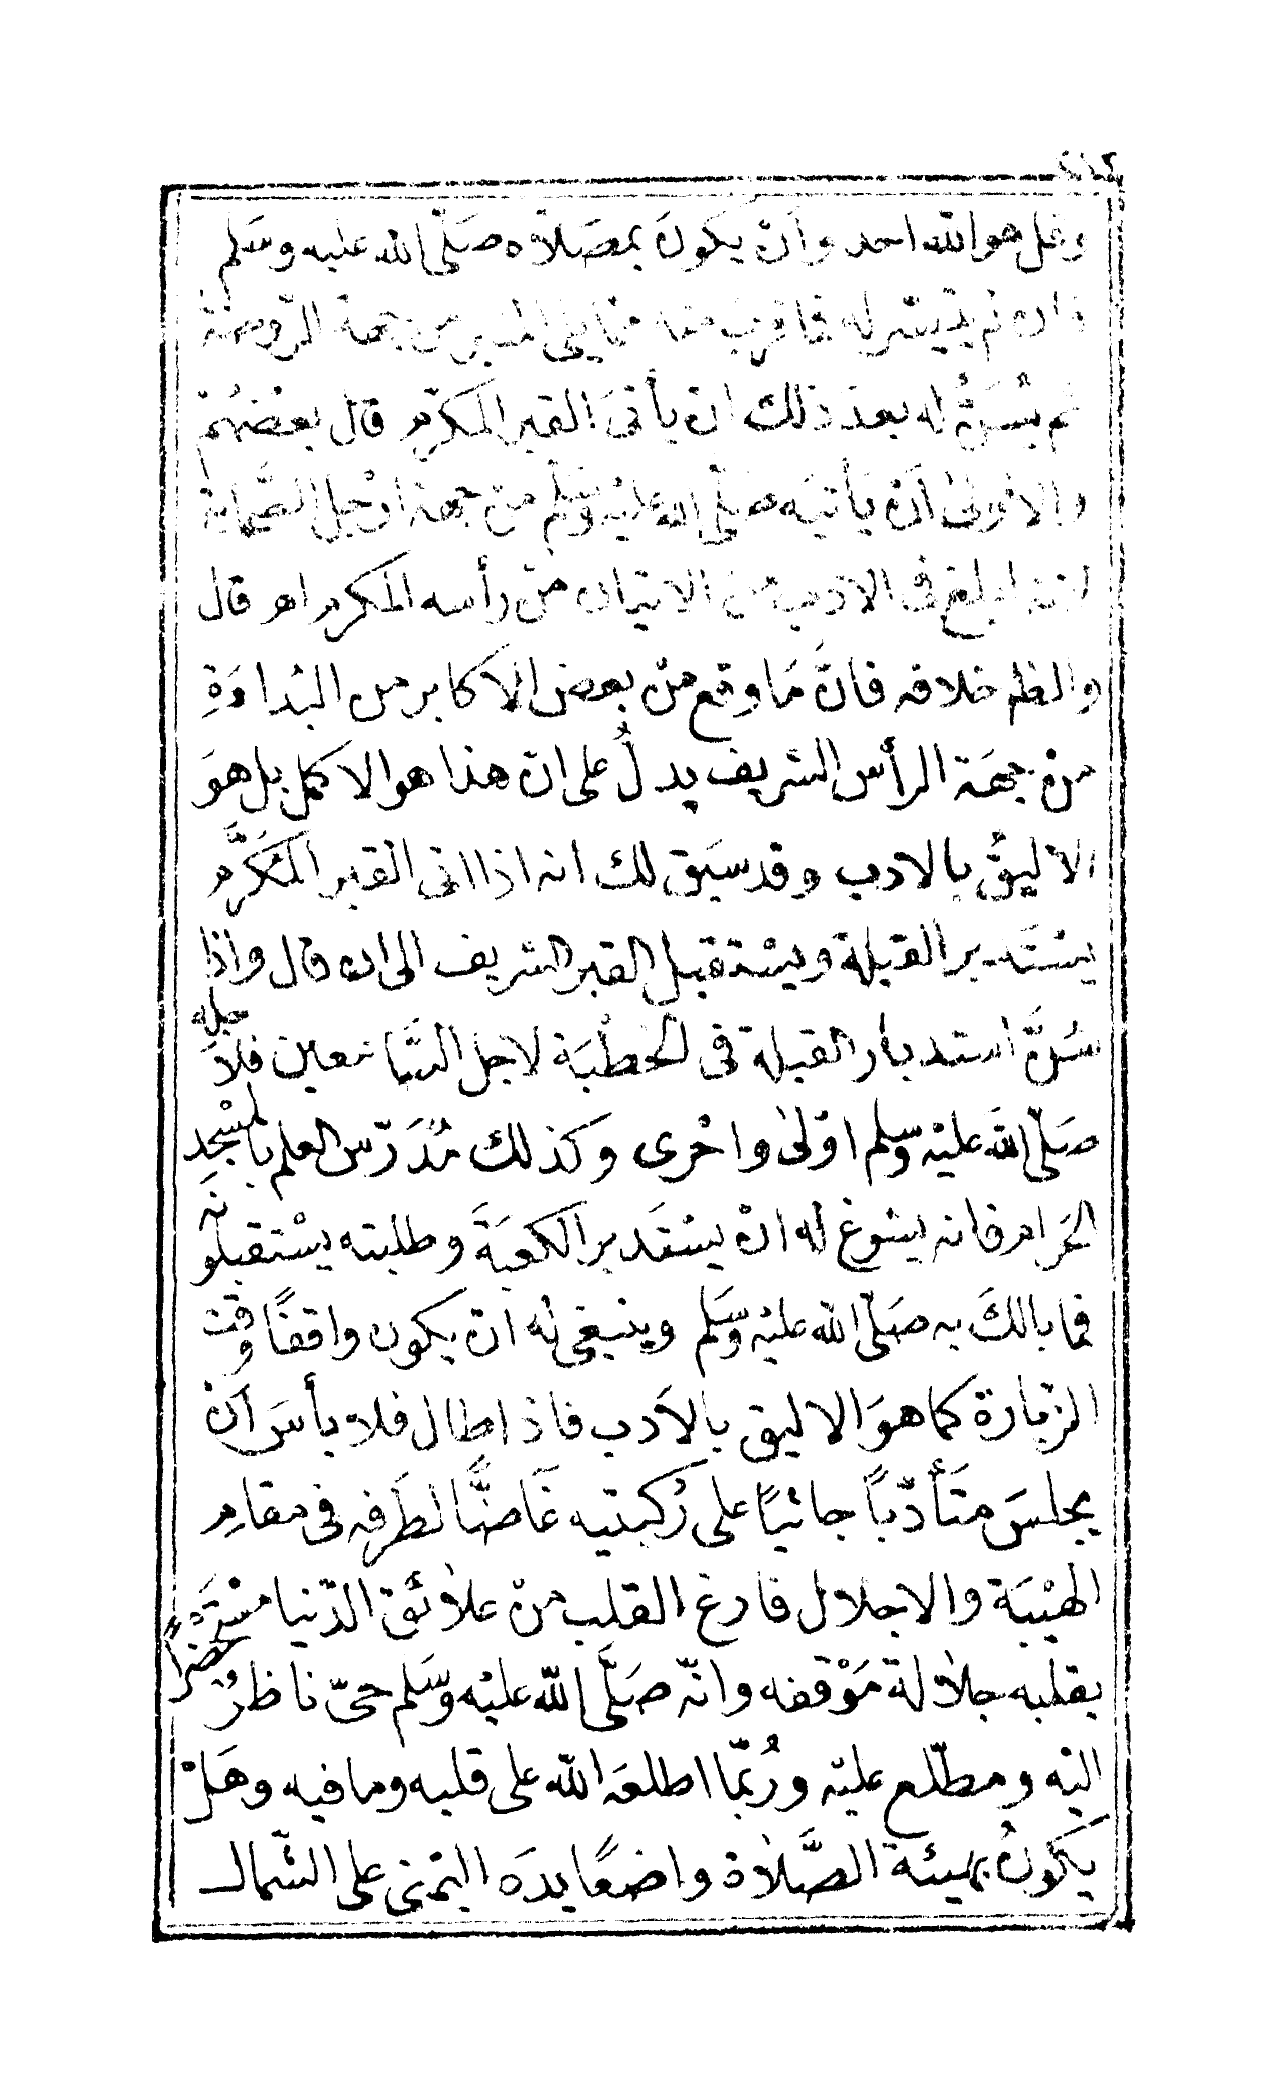 وقل هو الله احد وان يكون بمصلاه صلّى الله عليه وسلم
وان لم يتيسر له فما قرب منه ممّا يلى المنبر من جهة الرّوضة
ثم يُسَنُّ له بعد ذلك ان يأتىَ القبر المكرّم قال بعضهم
والاولىٰ أن يأتيَه صلّى الله عليْه وسَلّم من جهة ارْجل الصَّحابة
لانه ابلغ فى الادب من الاتيان من رأسه المكرم اهـ قال
والظم خلافه فانَّ مَا وقع منْ بعض الاكابر من البُداءَةِ
منْ جهَة الرأس الشريف يدلُّ على ان هذا هو الاكمل بل هوَ
الاليقُ بالادب وقد سبَق لك انه اذا اتى القبر المكَرَّم
يسْتَدبر القبلة ويسْتقبل القبر الشريف الى ان قال واذا
سُنَّ استدبار القبلة فى الخطْبَة لاجل السَّامعين فلاَجله
صَلّى الله عليْه وسلم اوْلىٰ واحْرى وكذلك مُدَرّس العلم بالمسْجد
الحَرام فانه يسُوغ له ان يسْتَدبر الكعبَةَ وطلبته يسْتقبلونه
فما بالكَ به صَلّى الله عليْه وسَلم وينبغى له ان يكون واقفًا وقت
الزيارة كما هوَ الاليق بالاَدب فاذ اطال فلا بأسَ أنْ
يجلسَ متَأدّباً جاثياً على رُكبتيه غَاضًّا لطَرفه فى مقامِ
الهيْبَة والاجلال فارغ القلب منْ علاٰئق الدّنيا مسْتَحْضراً
بقلبه جلاٰلة مَوْقفه وانّه صَلَّى الله عليْه وسَّلم حىّ ناظرٌ
اليْه ومطّلع عليْه ورُبّما اطلعَه الله على قلبه وما فيه وهَلْ
يكونُ بهيئة الصَّلاٰة واضعًا يدَه اليمْنى على الشّمال